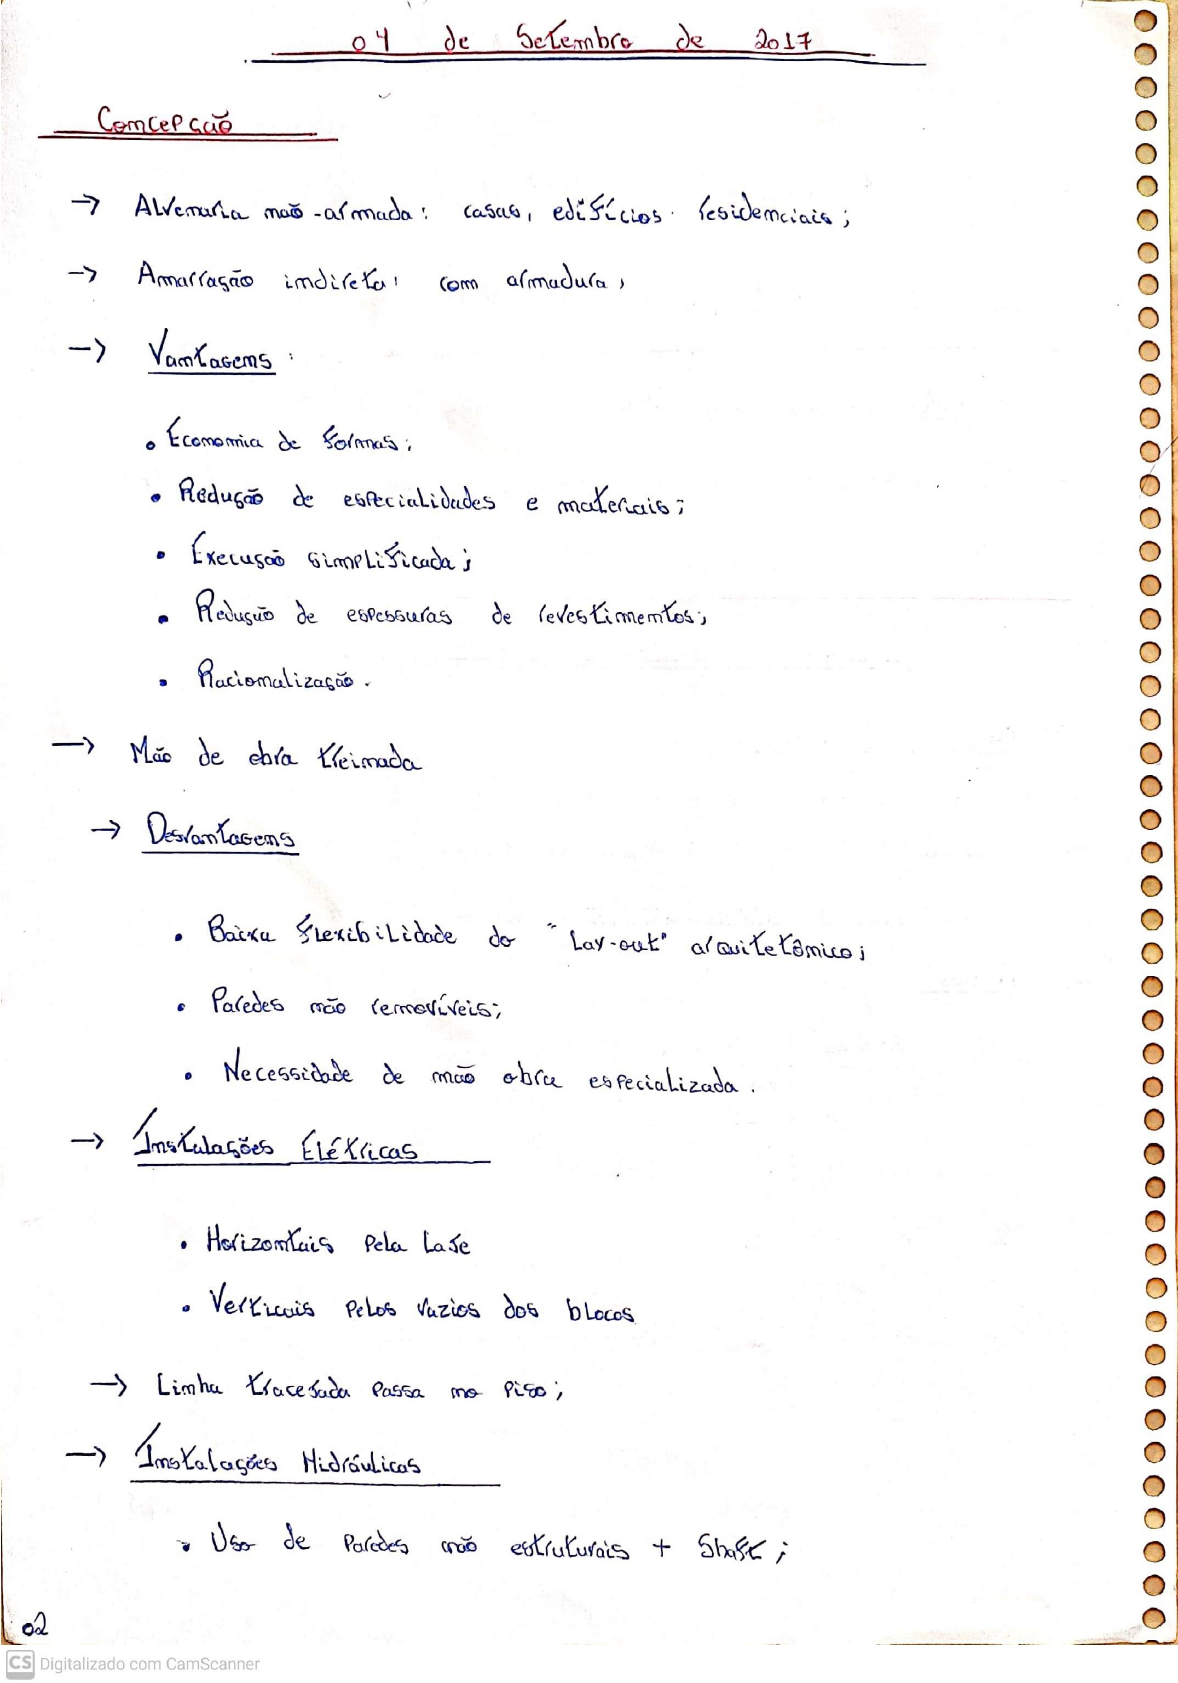 04 de Setembro de 2017
Concepção
→ Alvenaria não-armada: casas, edifícios residenciais;
→ Amarração indireta: com armadura;
→ Vantagens:
• Economia de formas;
• Redução de especialidades e materiais;
• Execução simplificada;
• Redução de espessuras de revestimentos;
• Racionalização.
→ Mão de obra treinada
→ Desvantagens
• Baixa flexibilidade do "Lay-out" arquitetônico;
• Paredes não removíveis;
• Necessidade de mão obra especializada.
→ Instalações Elétricas
• Horizontais pela Laje
• Verticais pelos vazios dos blocos
→ Linha tracejada passa no piso;
→ Instalações Hidráulicas
• Uso de Paredes não estruturais + Shaft;
02
CS Digitalizado com CamScanner